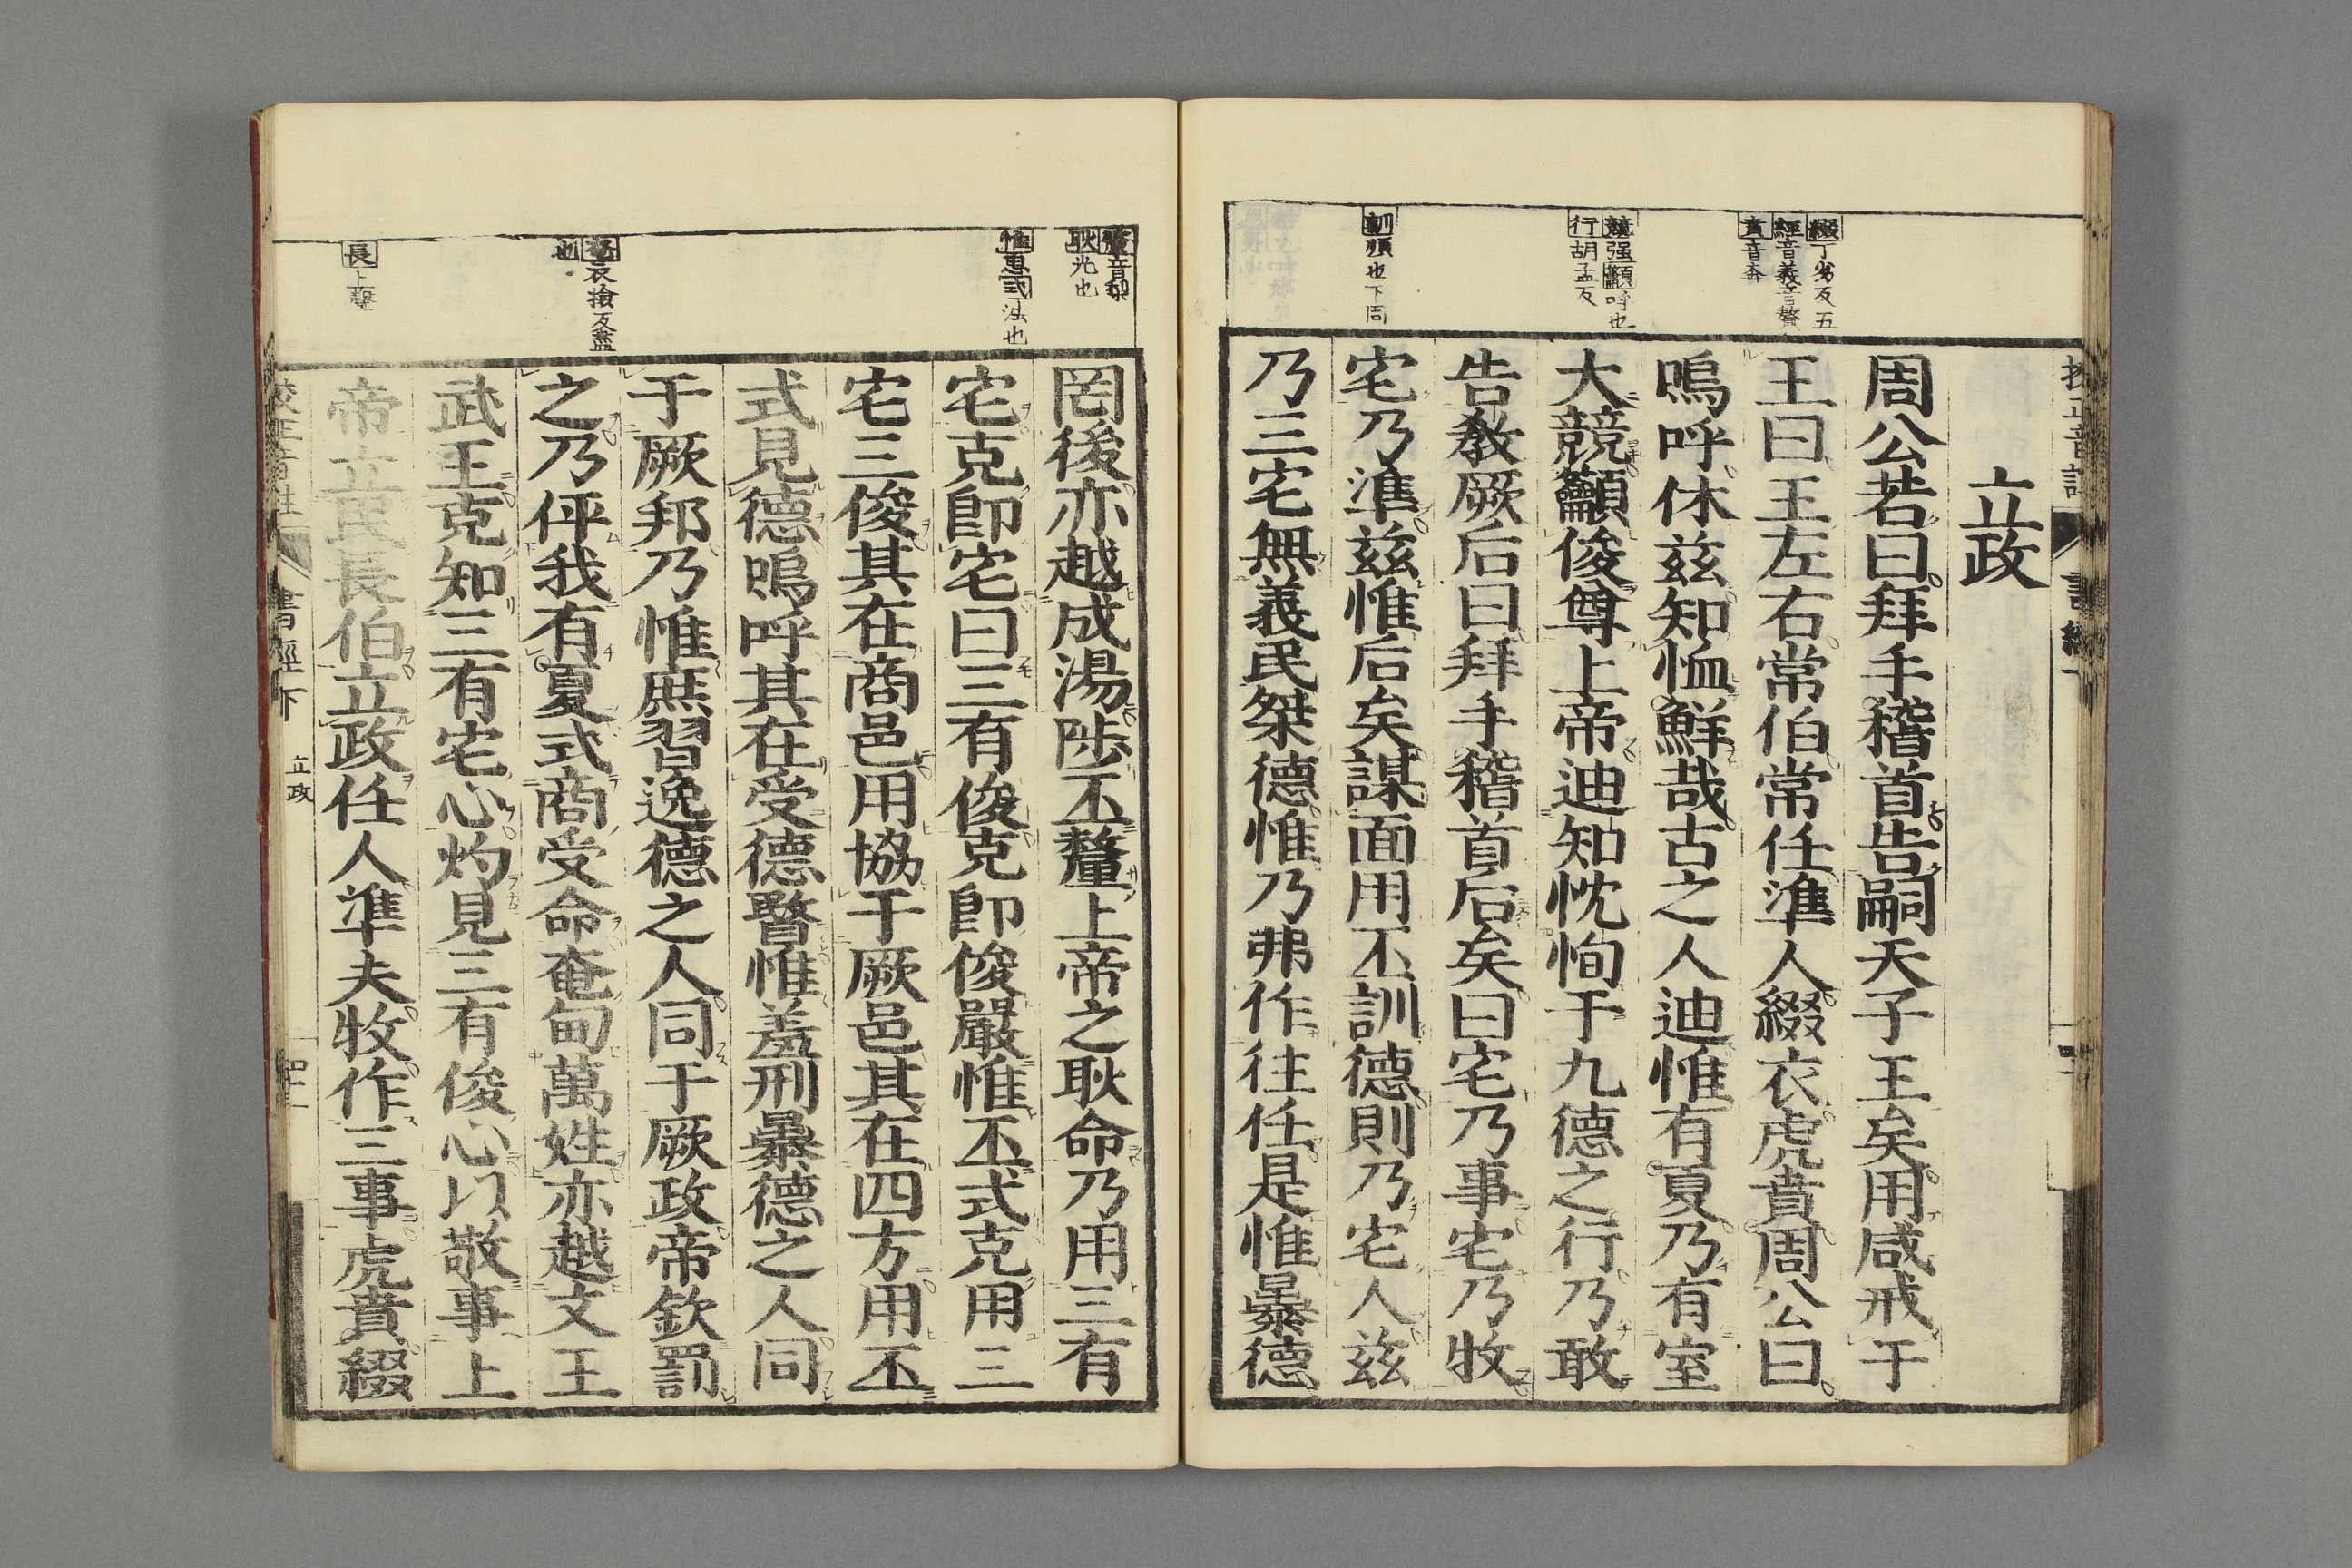 綴丁劣反五
經音義音贅
賁音奔
競强籲呼也
行胡孟反
訓順也下同
立政
周公若曰拜手稽首告嗣天子王矣用咸戒于
王曰王左右常伯常任準人綴衣虎賁周公曰
嗚呼休茲知恤鮮哉古之人迪惟有夏乃有室
大競籲俊尊上帝迪知忱恂于九德之行乃敢
告敎厥后曰拜手稽首后矣曰宅乃事宅乃牧
宅乃準茲惟后矣謀面用丕訓德則乃宅人茲
乃三宅無義民桀德惟乃弗作往任是惟暴德
釐音梨
耿光也
惟思式法也
奄衣撿反盡
也
長上聲
罔後亦越成湯陟丕釐上帝之耿命乃用三有
宅克卽宅曰三有俊克卽俊嚴惟丕式克用三
宅三俊其在商邑用協于厥邑其在四方用丕
式見德嗚呼其在受德暋惟羞刑暴德之人同
于厥邦乃惟庶習逸德之人同于厥政帝欽罰
之乃伻我有夏式商受命奄甸萬姓亦越文王
武王克知三有宅心灼見三有俊心以敬事上
帝立民長伯立政任人準夫牧作三事虎賁綴
校正音註 書經下 立政